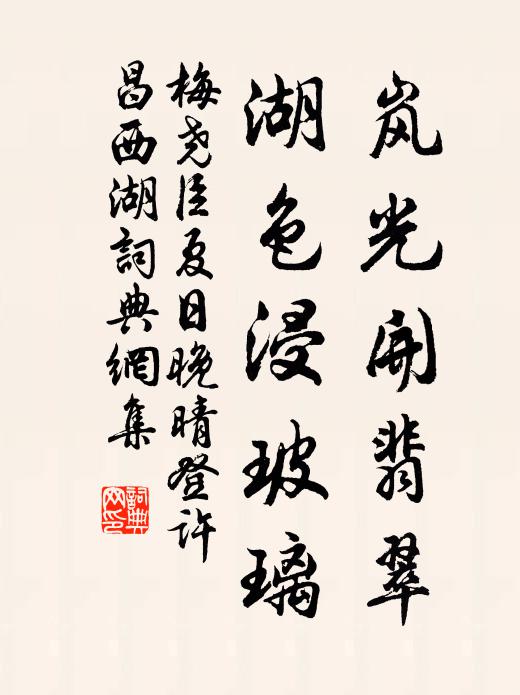 岚光开翡翠
湖色浸玻璃
梅尧臣夏日晚晴登许
昌西湖詞典網集
詞典
网印